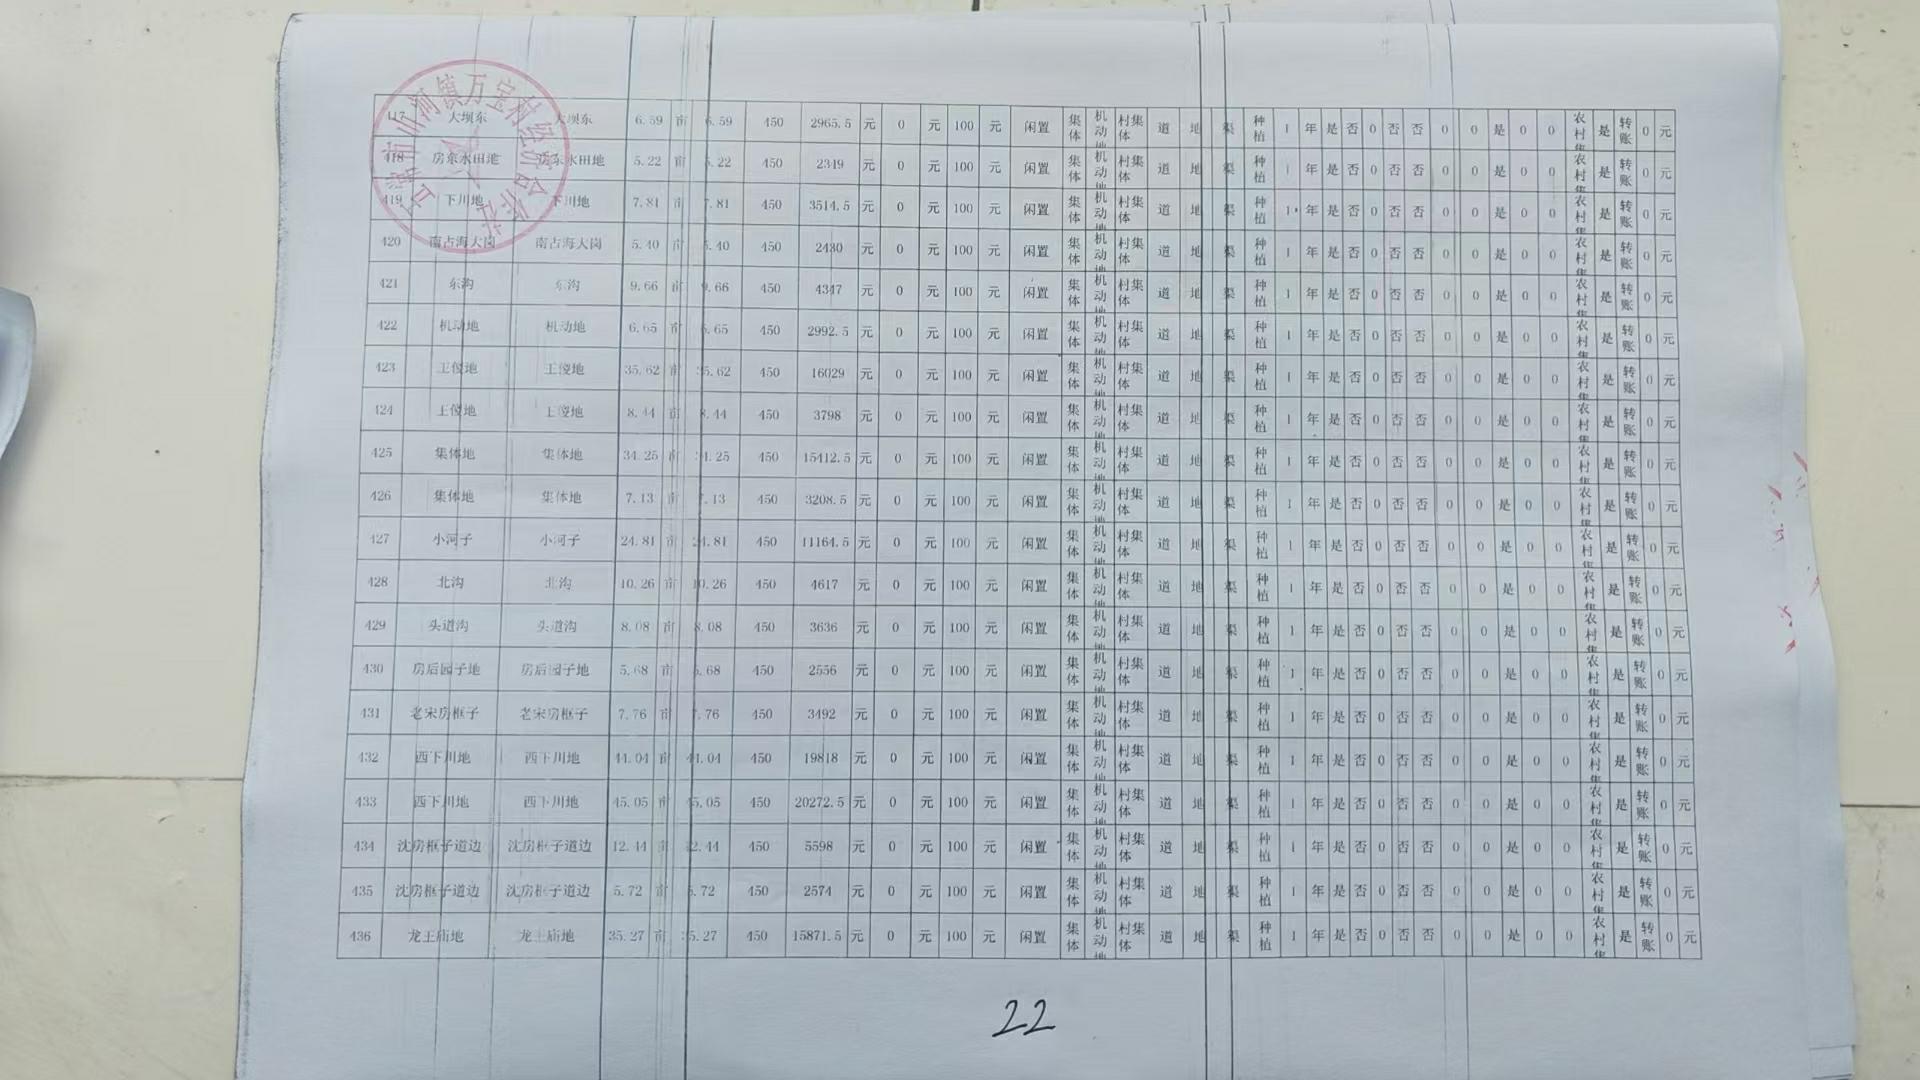 五常市山河镇万宝村经济合作社
417 大坝东 大坝东 6.59 亩 6.59 450 2965.5 元 0 元 100 元 闲置 集体 机动地 村集体 道 地 渠 种植 1 年 是 否 0 否 否 0 0 是 0 0 农村集 是 转账 0 元
418 房东水田地 房东水田地 5.22 亩 5.22 450 2349 元 0 元 100 元 闲置 集体 机动地 村集体 道 地 渠 种植 1 年 是 否 0 否 否 0 0 是 0 0 农村集 是 转账 0 元
419 下川地 下川地 7.81 亩 7.81 450 3514.5 元 0 元 100 元 闲置 集体 机动地 村集体 道 地 渠 种植 1 年 是 否 0 否 否 0 0 是 0 0 农村集 是 转账 0 元
420 南占海大岗 南占海大岗 5.40 亩 5.40 450 2430 元 0 元 100 元 闲置 集体 机动地 村集体 道 地 渠 种植 1 年 是 否 0 否 否 0 0 是 0 0 农村集 是 转账 0 元
421 东沟 东沟 9.66 亩 9.66 450 4347 元 0 元 100 元 闲置 集体 机动地 村集体 道 地 渠 种植 1 年 是 否 0 否 否 0 0 是 0 0 农村集 是 转账 0 元
422 机动地 机动地 6.65 亩 6.65 450 2992.5 元 0 元 100 元 闲置 集体 机动地 村集体 道 地 渠 种植 1 年 是 否 0 否 否 0 0 是 0 0 农村集 是 转账 0 元
423 王俊地 王俊地 35.62 亩 35.62 450 16029 元 0 元 100 元 闲置 集体 机动地 村集体 道 地 渠 种植 1 年 是 否 0 否 否 0 0 是 0 0 农村集 是 转账 0 元
424 王俊地 王俊地 8.44 亩 8.44 450 3798 元 0 元 100 元 闲置 集体 机动地 村集体 道 地 渠 种植 1 年 是 否 0 否 否 0 0 是 0 0 农村集 是 转账 0 元
425 集体地 集体地 34.25 亩 34.25 450 15412.5 元 0 元 100 元 闲置 集体 机动地 村集体 道 地 渠 种植 1 年 是 否 0 否 否 0 0 是 0 0 农村集 是 转账 0 元
426 集体地 集体地 7.13 亩 7.13 450 3208.5 元 0 元 100 元 闲置 集体 机动地 村集体 道 地 渠 种植 1 年 是 否 0 否 否 0 0 是 0 0 农村集 是 转账 0 元
427 小河子 小河子 24.81 亩 24.81 450 11164.5 元 0 元 100 元 闲置 集体 机动地 村集体 道 地 渠 种植 1 年 是 否 0 否 否 0 0 是 0 0 农村集 是 转账 0 元
428 北沟 北沟 10.26 亩 10.26 450 4617 元 0 元 100 元 闲置 集体 机动地 村集体 道 地 渠 种植 1 年 是 否 0 否 否 0 0 是 0 0 农村集 是 转账 0 元
429 头道沟 头道沟 8.08 亩 8.08 450 3636 元 0 元 100 元 闲置 集体 机动地 村集体 道 地 渠 种植 1 年 是 否 0 否 否 0 0 是 0 0 农村集 是 转账 0 元
430 房后园子地 房后园子地 5.68 亩 5.68 450 2556 元 0 元 100 元 闲置 集体 机动地 村集体 道 地 渠 种植 1 年 是 否 0 否 否 0 0 是 0 0 农村集 是 转账 0 元
431 老宋房框子 老宋房框子 7.76 亩 7.76 450 3492 元 0 元 100 元 闲置 集体 机动地 村集体 道 地 渠 种植 1 年 是 否 0 否 否 0 0 是 0 0 农村集 是 转账 0 元
432 西下川地 西下川地 44.04 亩 44.04 450 19818 元 0 元 100 元 闲置 集体 机动地 村集体 道 地 渠 种植 1 年 是 否 0 否 否 0 0 是 0 0 农村集 是 转账 0 元
433 西下川地 西下川地 45.05 亩 45.05 450 20272.5 元 0 元 100 元 闲置 集体 机动地 村集体 道 地 渠 种植 1 年 是 否 0 否 否 0 0 是 0 0 农村集 是 转账 0 元
434 沈房框子道边 沈房框子道边 12.44 亩 12.44 450 5598 元 0 元 100 元 闲置 集体 机动地 村集体 道 地 渠 种植 1 年 是 否 0 否 否 0 0 是 0 0 农村集 是 转账 0 元
435 沈房框子道边 沈房框子道边 5.72 亩 5.72 450 2574 元 0 元 100 元 闲置 集体 机动地 村集体 道 地 渠 种植 1 年 是 否 0 否 否 0 0 是 0 0 农村集 是 转账 0 元
436 龙王庙地 龙王庙地 35.27 亩 35.27 450 15871.5 元 0 元 100 元 闲置 集体 机动地 村集体 道 地 渠 种植 1 年 是 否 0 否 否 0 0 是 0 0 农村集 是 转账 0 元
22